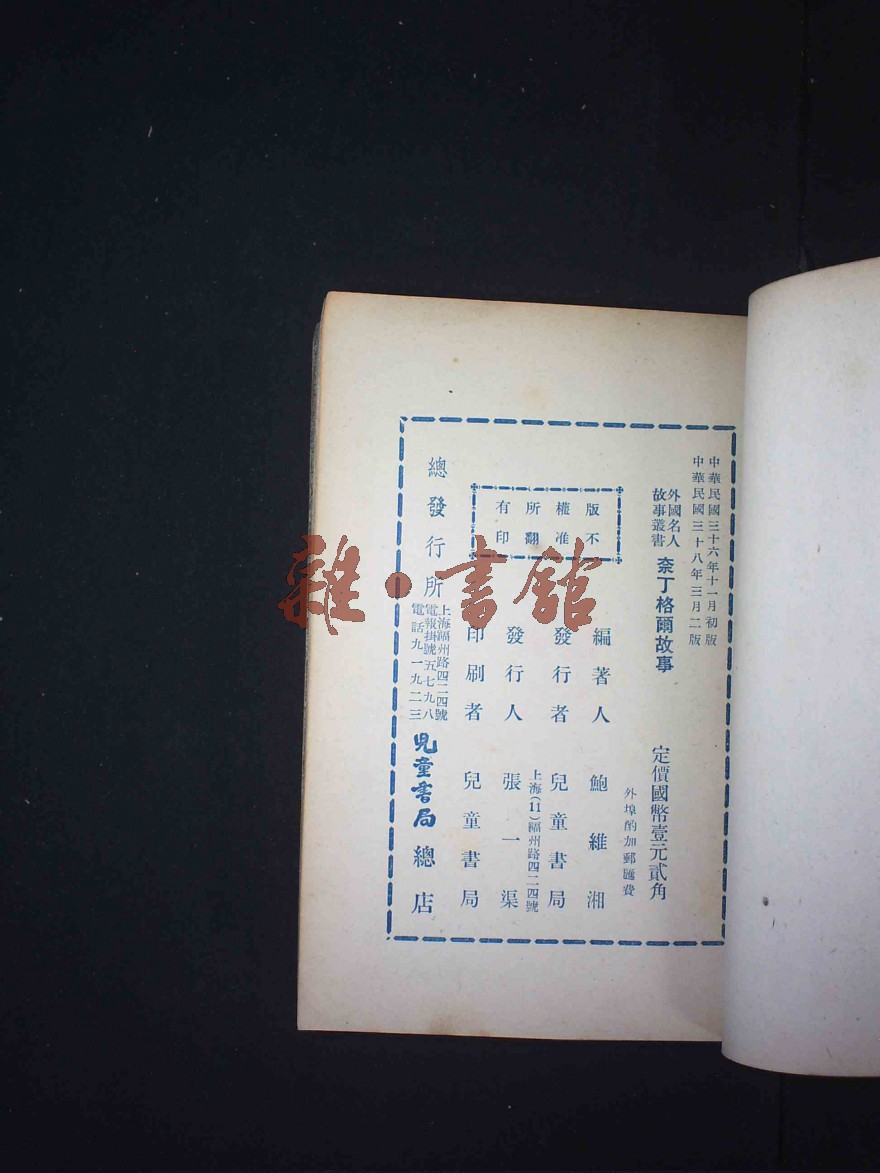 中華民國三十六年十一月初版
中華民國三十八年三月二版
外國名人
故事叢書
奈丁格爾故事
定價國幣壹元貳角
外埠酌加郵匯費
版權所有
不准翻印
編著人 鮑維湘
發行者 兒童書局
上海(11)福州路四二四號
發行人 張一渠
印刷者 兒童書局
總發行所
上海福州路四二四號
電報掛號五七九八
電話九一九二三
兒童書局總店
雜·書館